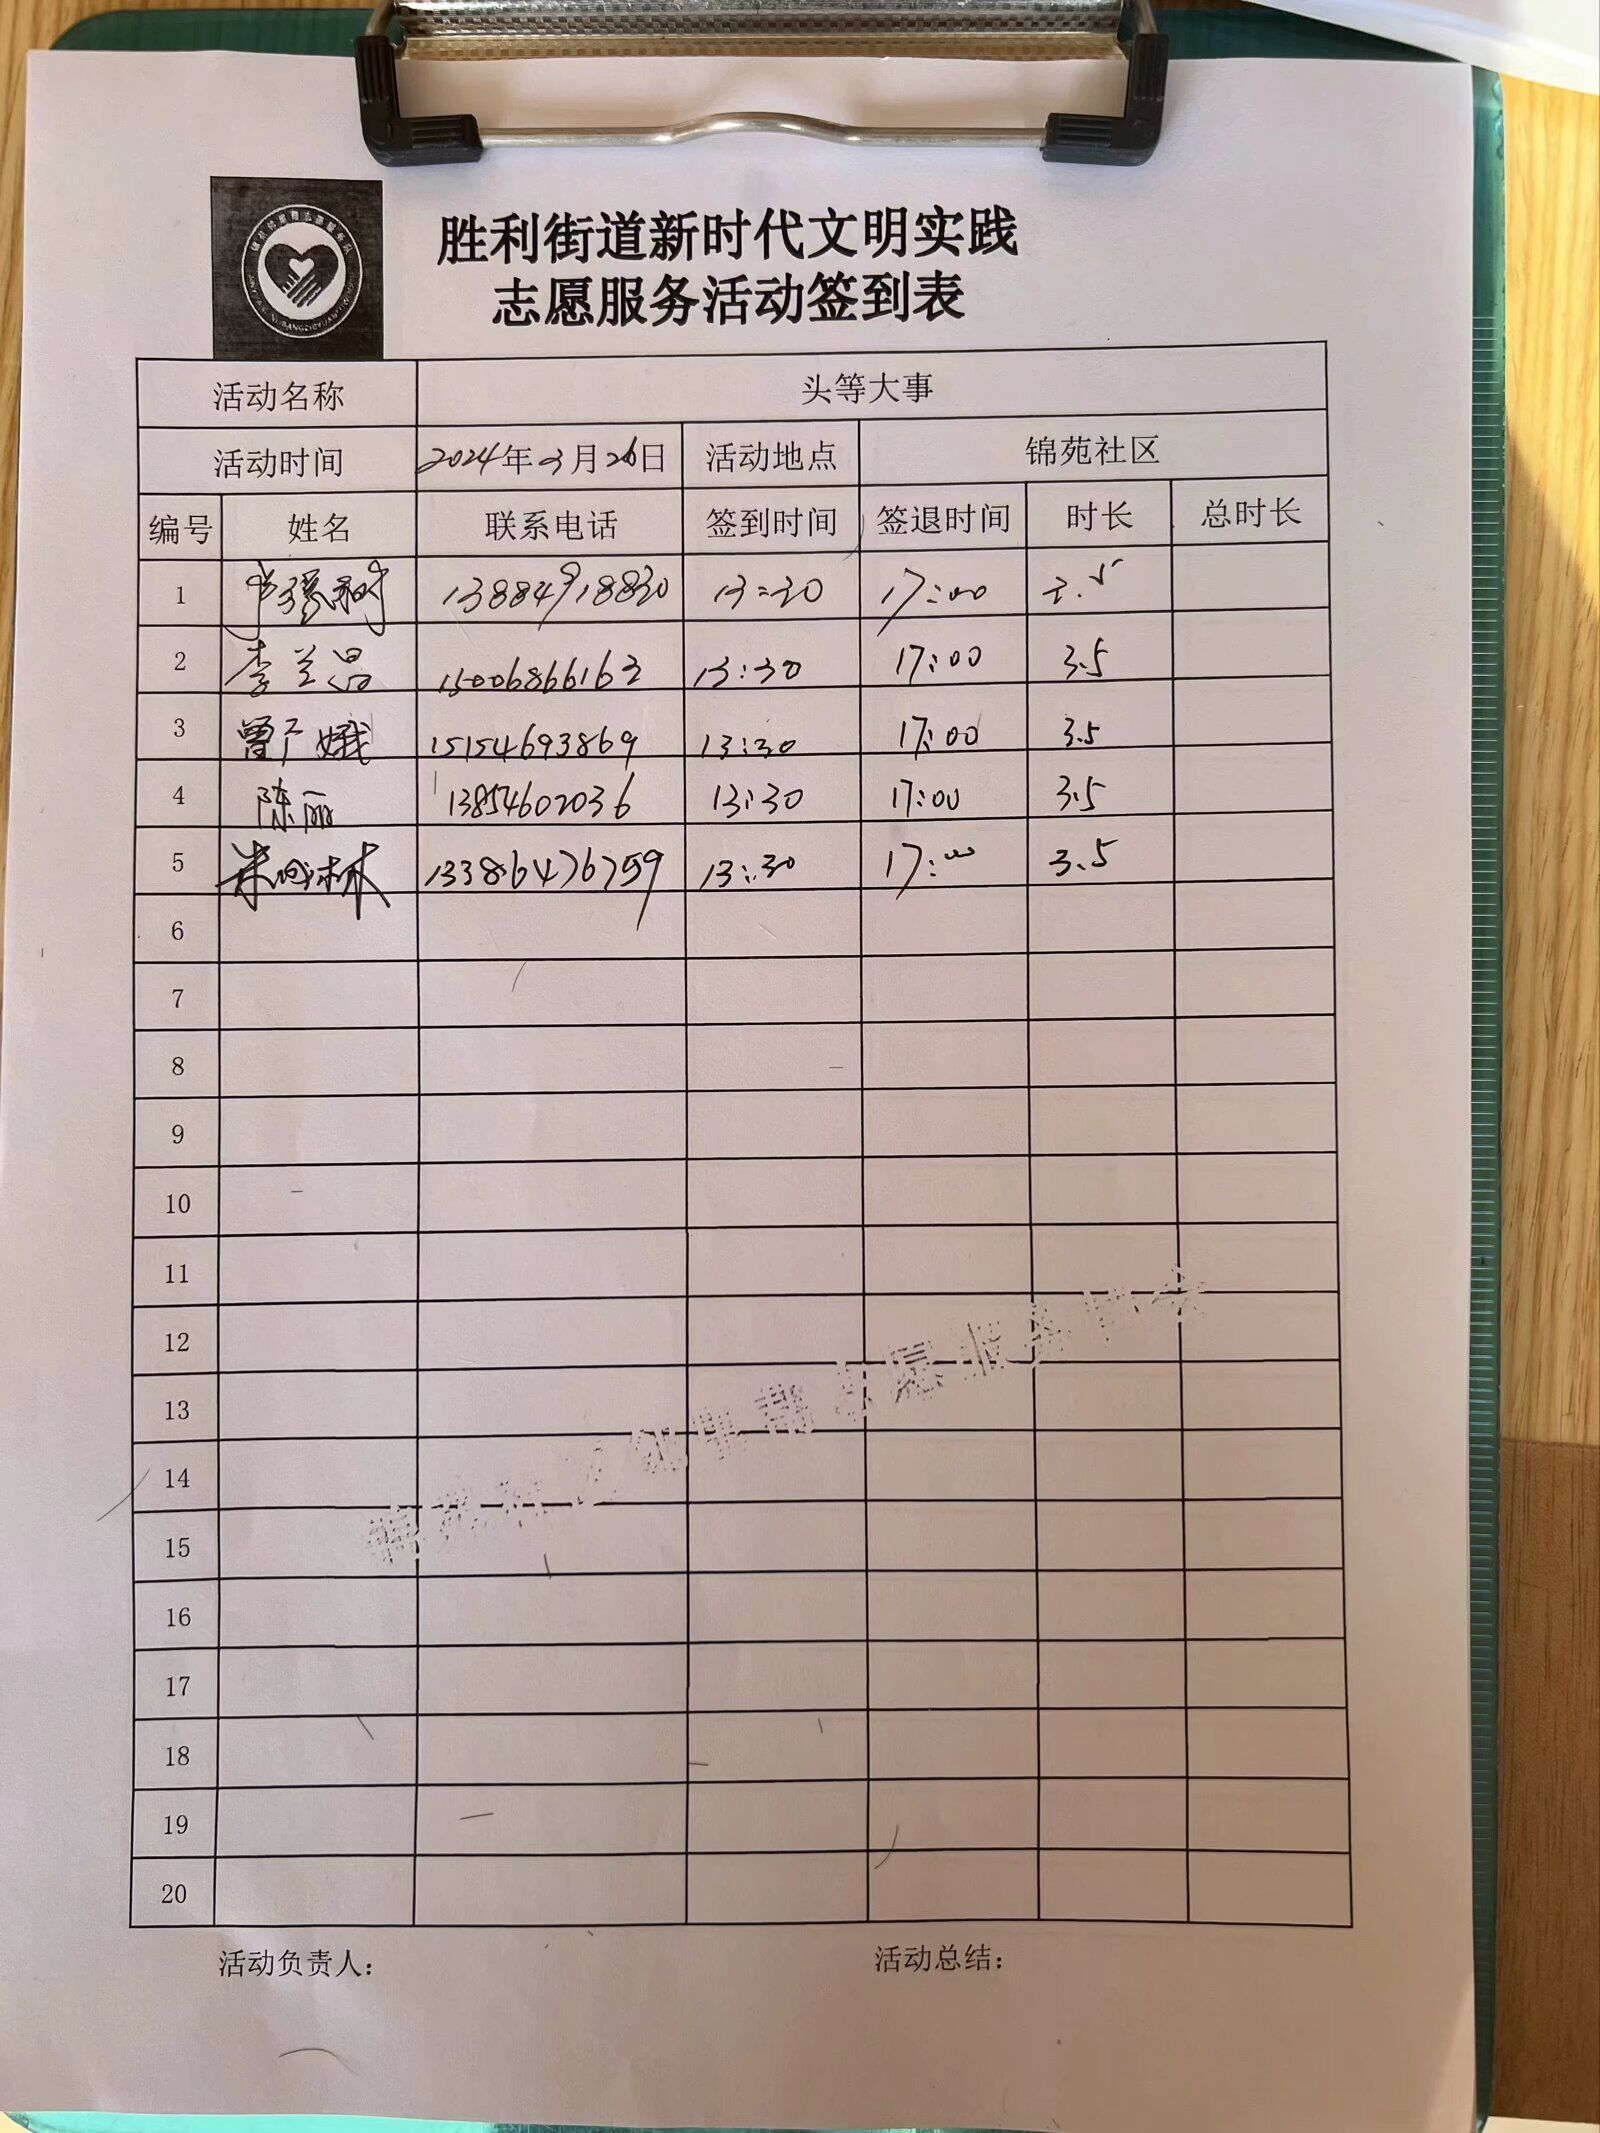 胜利街道新时代文明实践
志愿服务活动签到表
活动名称 头等大事
活动时间 2024年3月26日 活动地点 锦苑社区
编号 姓名 联系电话 签到时间 签退时间 时长 总时长
1 13884918830 13:30 17:00 3.5
2 李兰昌 15006866163 13:30 17:00 3.5
3 曾广娥 15154693869 13:30 17:00 3.5
4 陈丽 13854602036 13:30 17:00 3.5
5 13386476759 13:30 17:00 3.5
6
7
8
9
10
11
12
13
14
15
16
17
18
19
20
活动负责人: 活动总结: